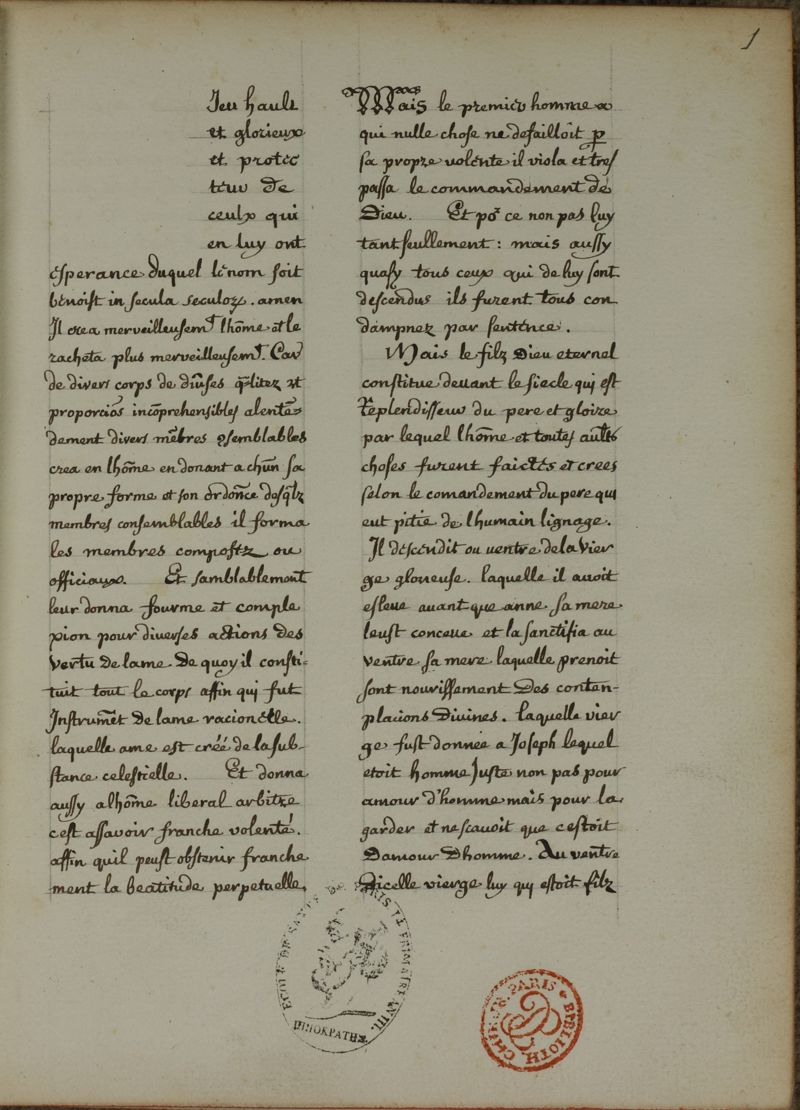 1
Jeu hault
et glorieux
et protec
teur de
ceulx qui
en luy ont
esperance duquel le nom soit
benoist in secula seculoꝝ. amen
Il crea merveilleusemt lhōme et le
racheta plus merveilleusemt. Car
de divers corps de diūses qlitez et
proporciōs incōprehensibles a lentē=
dement divers mēbres ꝯsemblables
crea en lhōme en donant a chūn sa
propre forme et son ordonce desqlz
membres consemblables il forma
les membres compostz ou
officiaux. Et samblablement
leur donna fourme et comple
xion pour diverses actions des
vertu de lame. De quoy il consti=
tuit tout le corps affin qui fut
Instrumēt de lame racionelle.
laquelle ame est créé de la sub-
stance celestielle. Et donna
aussy a lhōme liberal arbitre
cest assavoir franche volenté.
affin quil peust obtenir franche
ment la beatitude perpetuelle,
Mais le premier homme a
qui nulle chose ne defailloit ꝑ
sa propre volente il viola et tres
passa le commandement de
Dieu. Et por ce non pas luy
tant seullement : mais aussy
quasy tous ceux qui de luy sont
descendus ils furent tous con
dampnez par sentence.
Mais le filz Dieu eternel
constitue devant le siecle qui est
resplendisseur du pere et gloire
par lequel lhōme et toutes aults
choses furent faictes et crees
selon le comandement du pere qui
eut pitie de lhumain lignage.
Il descendit ou ventre de la vier
ge glorieuse. laquelle il avoit
esleue avant que anne sa mere
leust conceue et la sanctifia au
ventre sa mere laquelle prenoit
sont nourissement des conten-
placions divines. laquelle vier
ge fust donnee a Joseph lequel
etoit homme Juste non pas pour
amour d'homme mais pour la
garder et ne scavoit que cestoit
Damour Dhomme. Au ventre
Dicelle vierge luy qui estoit filz
PARIS
BIBLIOTH.